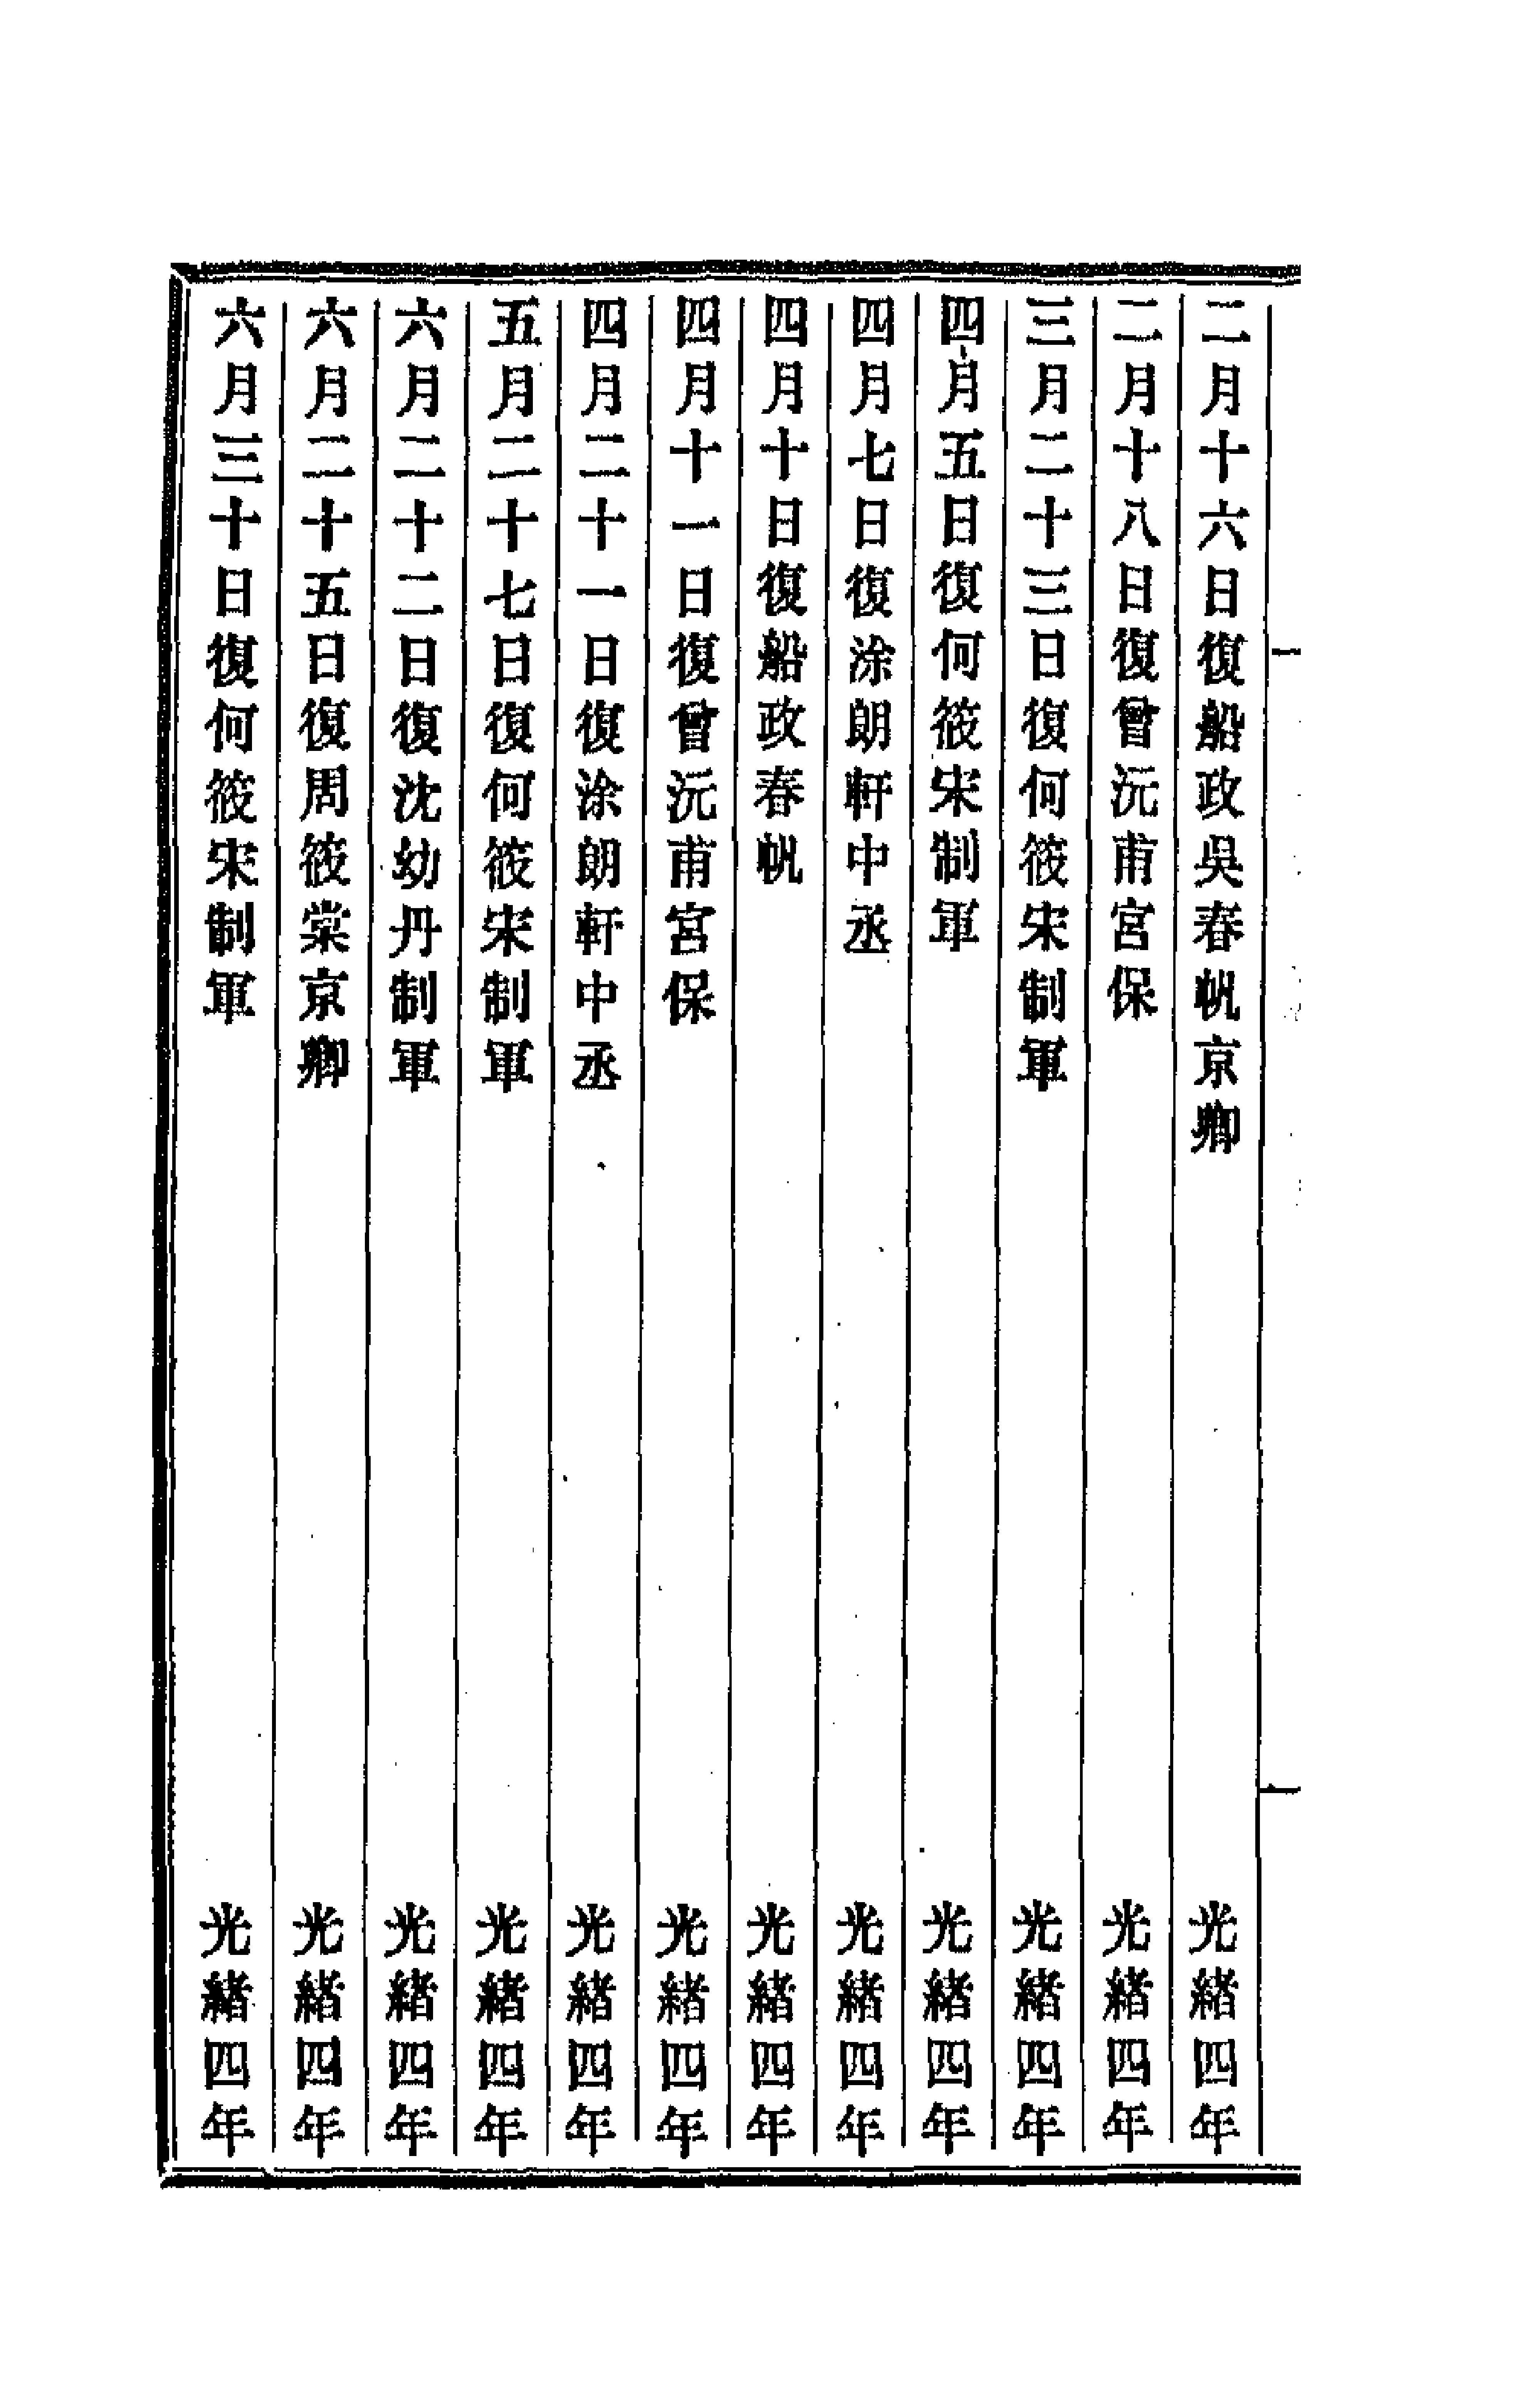 二月十六日復船政吳春帆京卿 光緒四年
二月十八日復曾沅甫宮保 光緒四年
三月二十三日復何筱宋制軍 光緒四年
四月五日復何筱宋制軍 光緒四年
四月七日復涂朗軒中丞 光緒四年
四月十日復船政春帆 光緒四年
四月十一日復曾沅甫宮保 光緒四年
四月二十一日復涂朗軒中丞 光緒四年
五月二十七日復何筱宋制軍 光緒四年
六月二十二日復沈幼丹制軍 光緒四年
六月二十五日復周筱棠京卿 光緒四年
六月三十日復何筱宋制軍 光緒四年